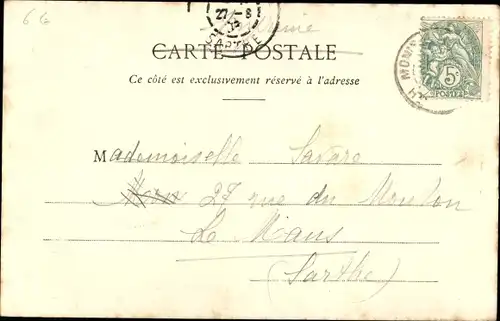 6G
27-8
03
SARTHE
CARTE POSTALE
Ce côté est exclusivement réservé à l'adresse
5c
POSTES
Mademoiselle Savare
27 rue du Mouton
Le Mans
(Sarthe)